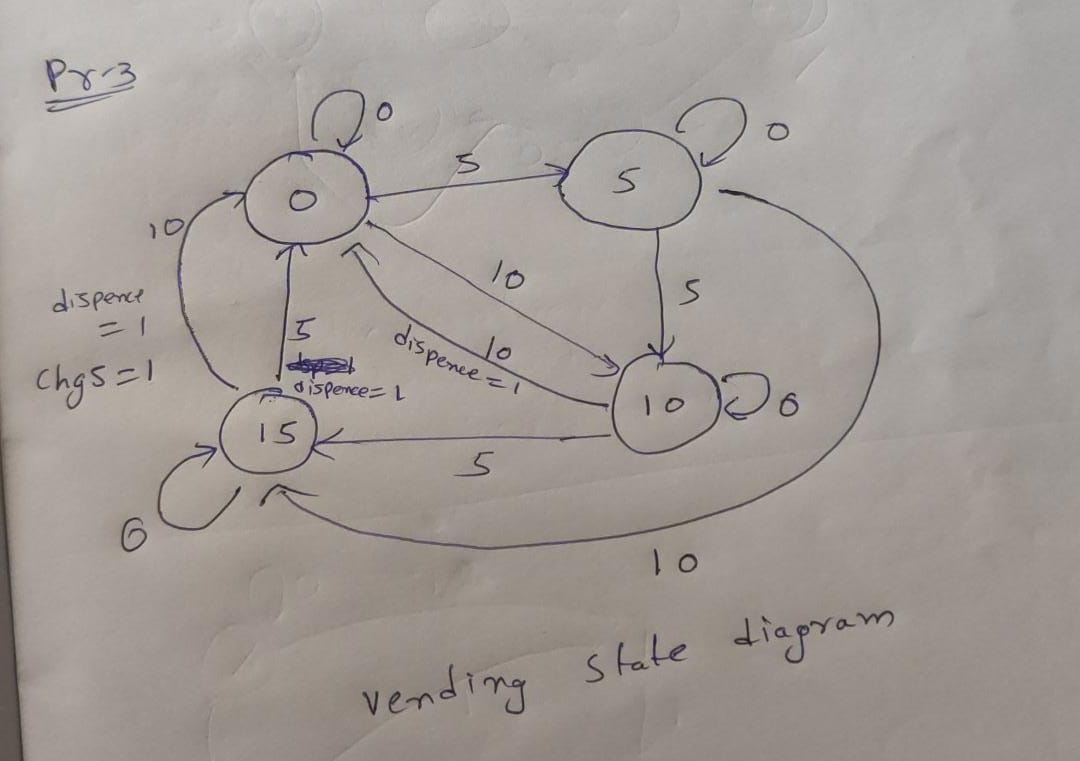 Pr-3
0
0
5
0
5
10
10
5
dispence
= 1
Chg5=1
5
dispence= 1
10
dispence=1
15
10
0
5
0
10
vending state diagram